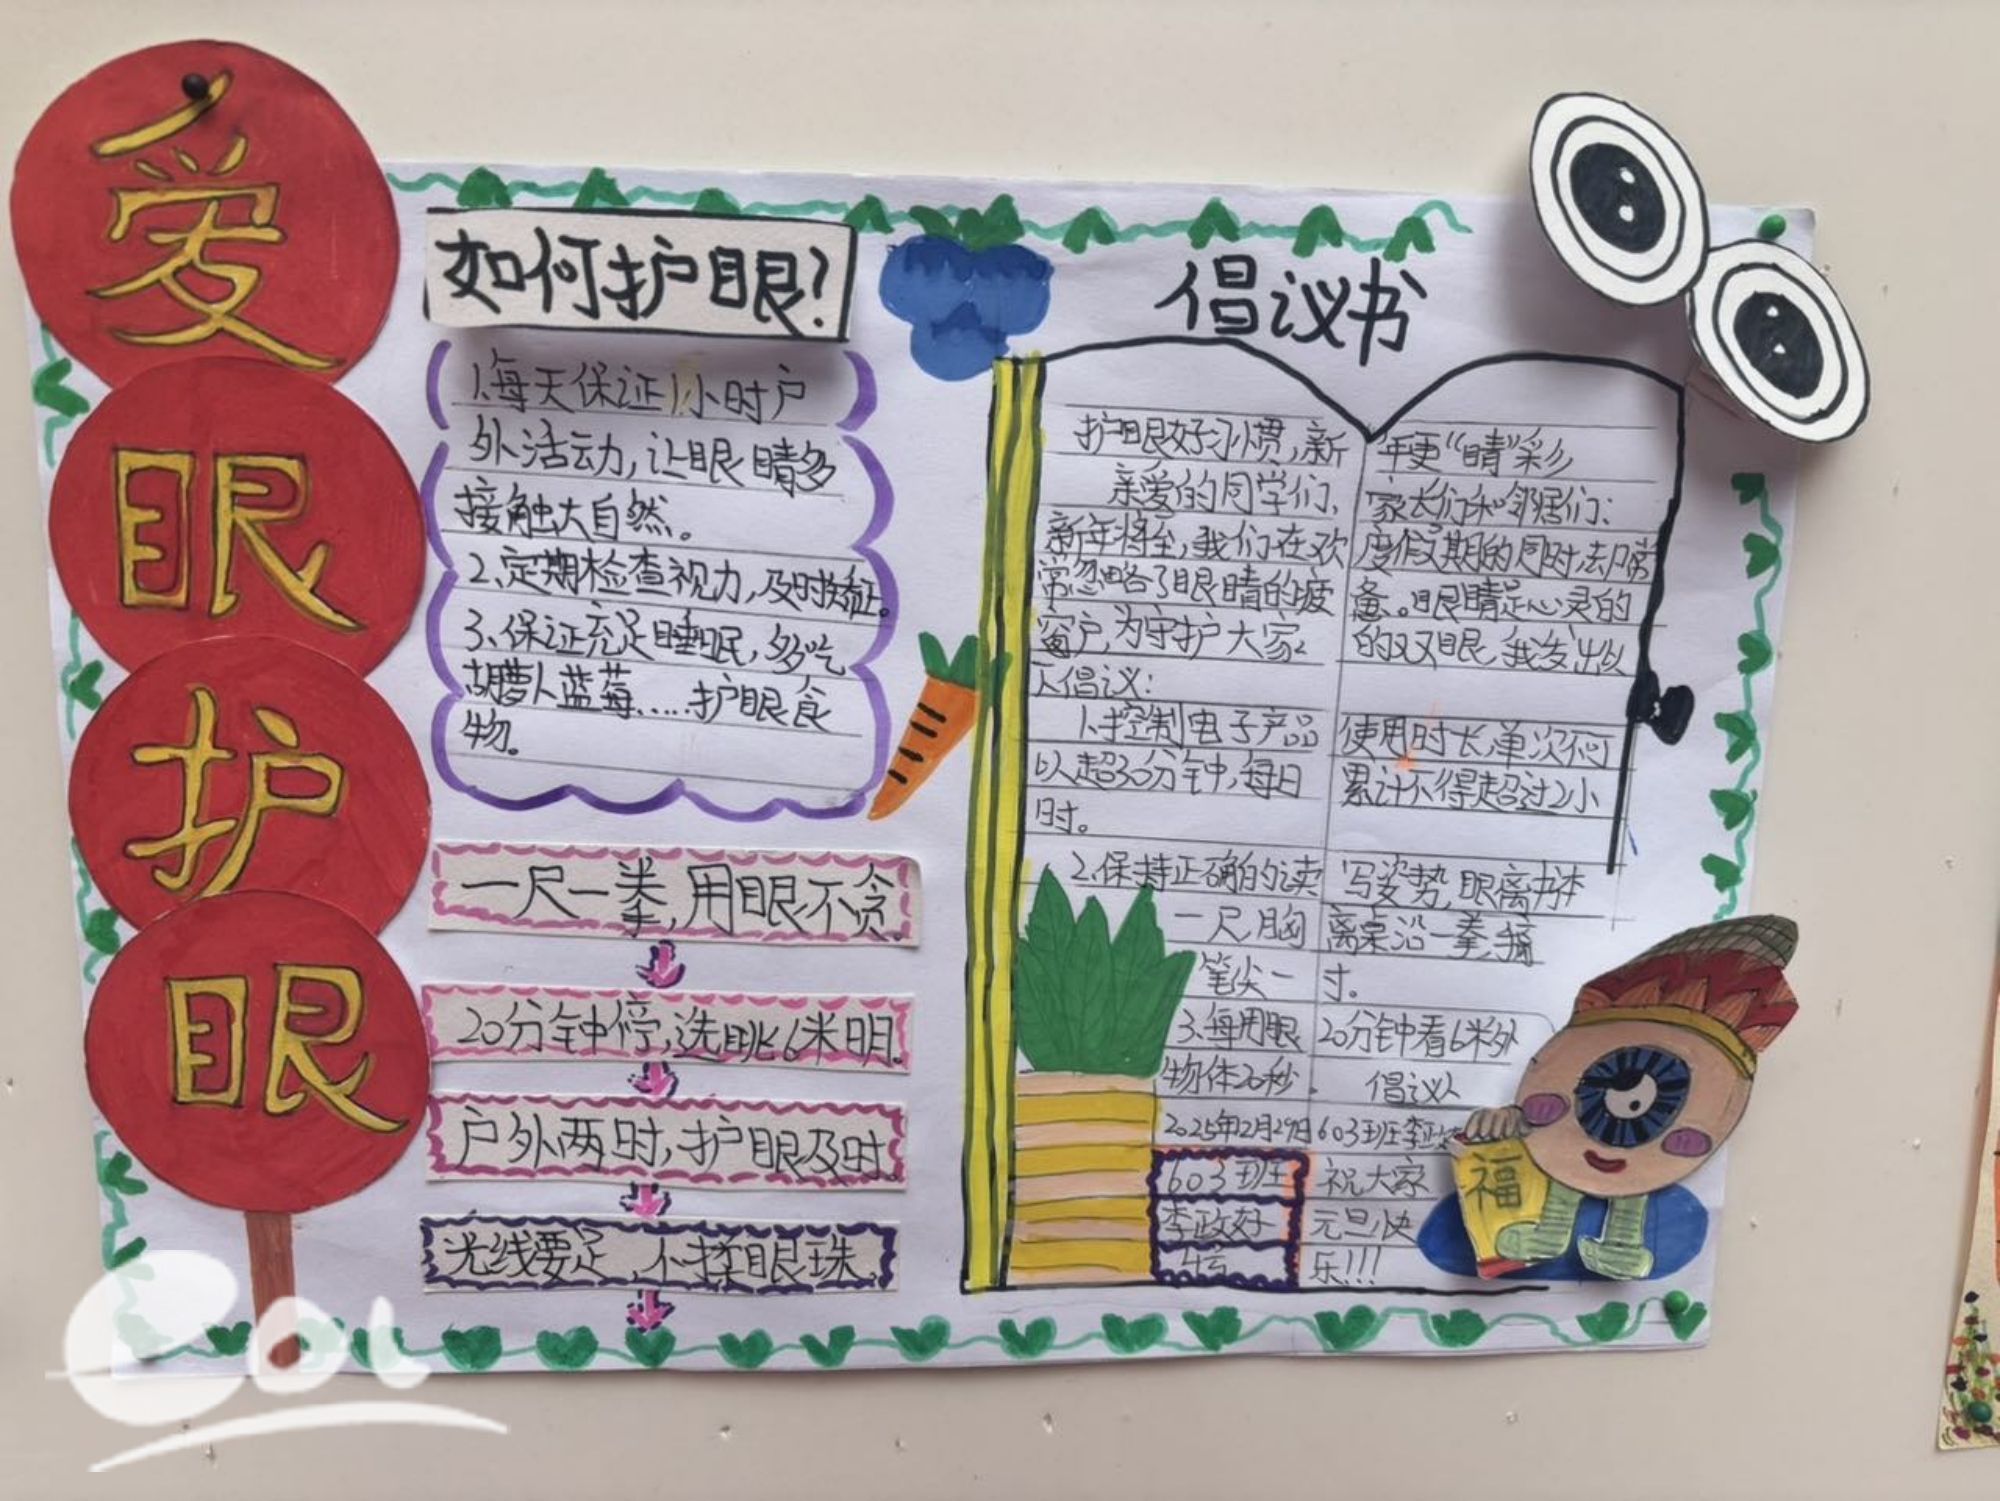 爱
眼
护
眼
如何护眼?
1.每天保证1小时户
外活动,让眼睛多
接触大自然。
2、定期检查视力,及时矫正。
3、保证充足睡眠,多吃
胡萝卜蓝莓……护眼食
物。
一尺一拳,用眼不贪.
20分钟停,选眺6米明.
户外两时,护眼及时.
光线要足,不揉眼珠.
倡议书
护眼好习惯,新年更“睛”彩
亲爱的同学们、家长们和邻居们:
新年将至,我们在欢度假期的同时,却常
常忽略了眼睛的疲惫。眼睛是心灵的
窗户,为守护大家的双眼,我发出以
倡议:
1.控制电子产品使用时长,单次不可
以超30分钟,每日累计不得超过2小
时。
2.保持正确的读写姿势,眼离书本
一尺胸离桌沿一拳,
笔尖一寸。
3.每用眼20分钟看6米外
物体20秒.倡议人
603班李政
603班
李政好
祝大家
元旦快
乐!!!
福